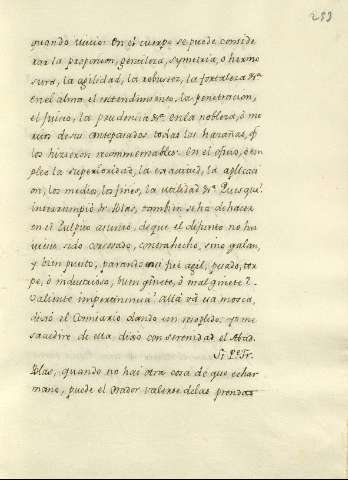 293
quando vivio: en el cuerpo se puede conside
rar la proporcion, gentileza, symetria, ò hermo
sura, la agilidad, la robustez, la fortaleza &c.
en el alma el entendimiento, la penetracion,
el juicio, la prudencia &c. en la nobleza, ò me
ritos de sus antepasados todas las hazañas, q
los hizieron recommendables: en el oficio, ò em
pleo la superioridad, la exactitud, la aplicaci
on, los medios, los fines, la utilidad &c. Pues què?
interrumpiò Fr. Blas, tambien se ha de hacer
en el Pulpito asunto, de que el difunto no ha
vivia sido corcobado, contrahecho, sino galan,
y bien puesto, parandose si fuè agil, pesado, tor
pe, ò industrioso, buen ginete, ò mal ginete?
valiente impertinencia! Allà và essa mosca,
dixo el Comisario dando un resoplido: yo me
sacudirè de ella, dixo con serenidad el Abad.
Si P. Fr.
Blas, quando no hai otra cosa de que echar
mano, puede el Orador valerse de las prendas